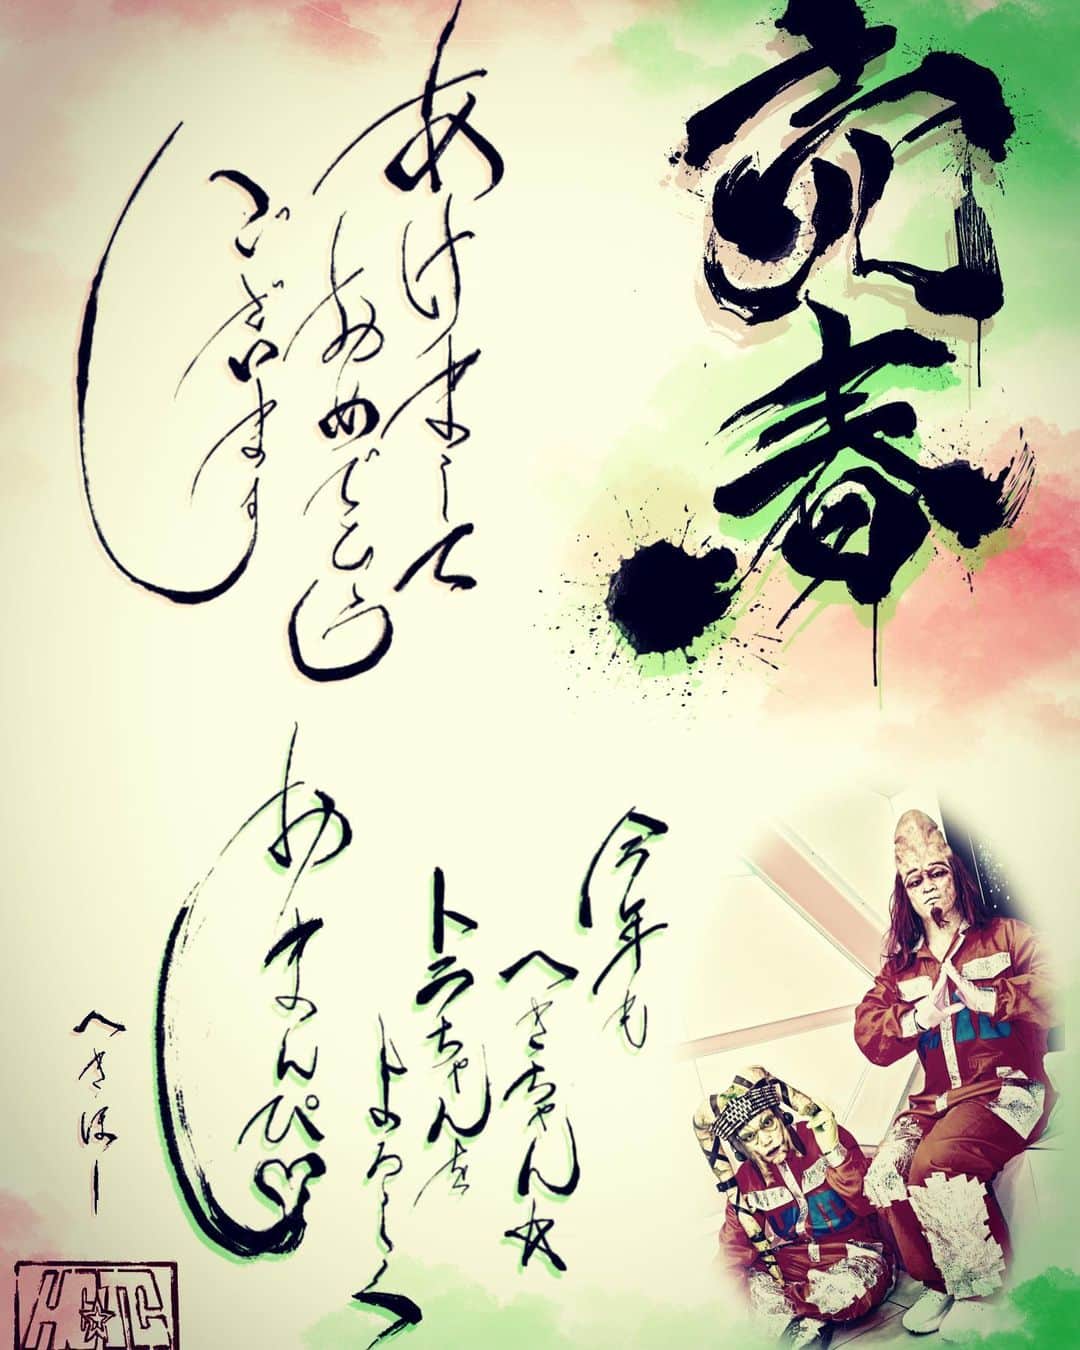 春
あけまして
おめでとう
ございます
今年も
へきちゃん
トラちゃんを
よろしく
おまんぴ